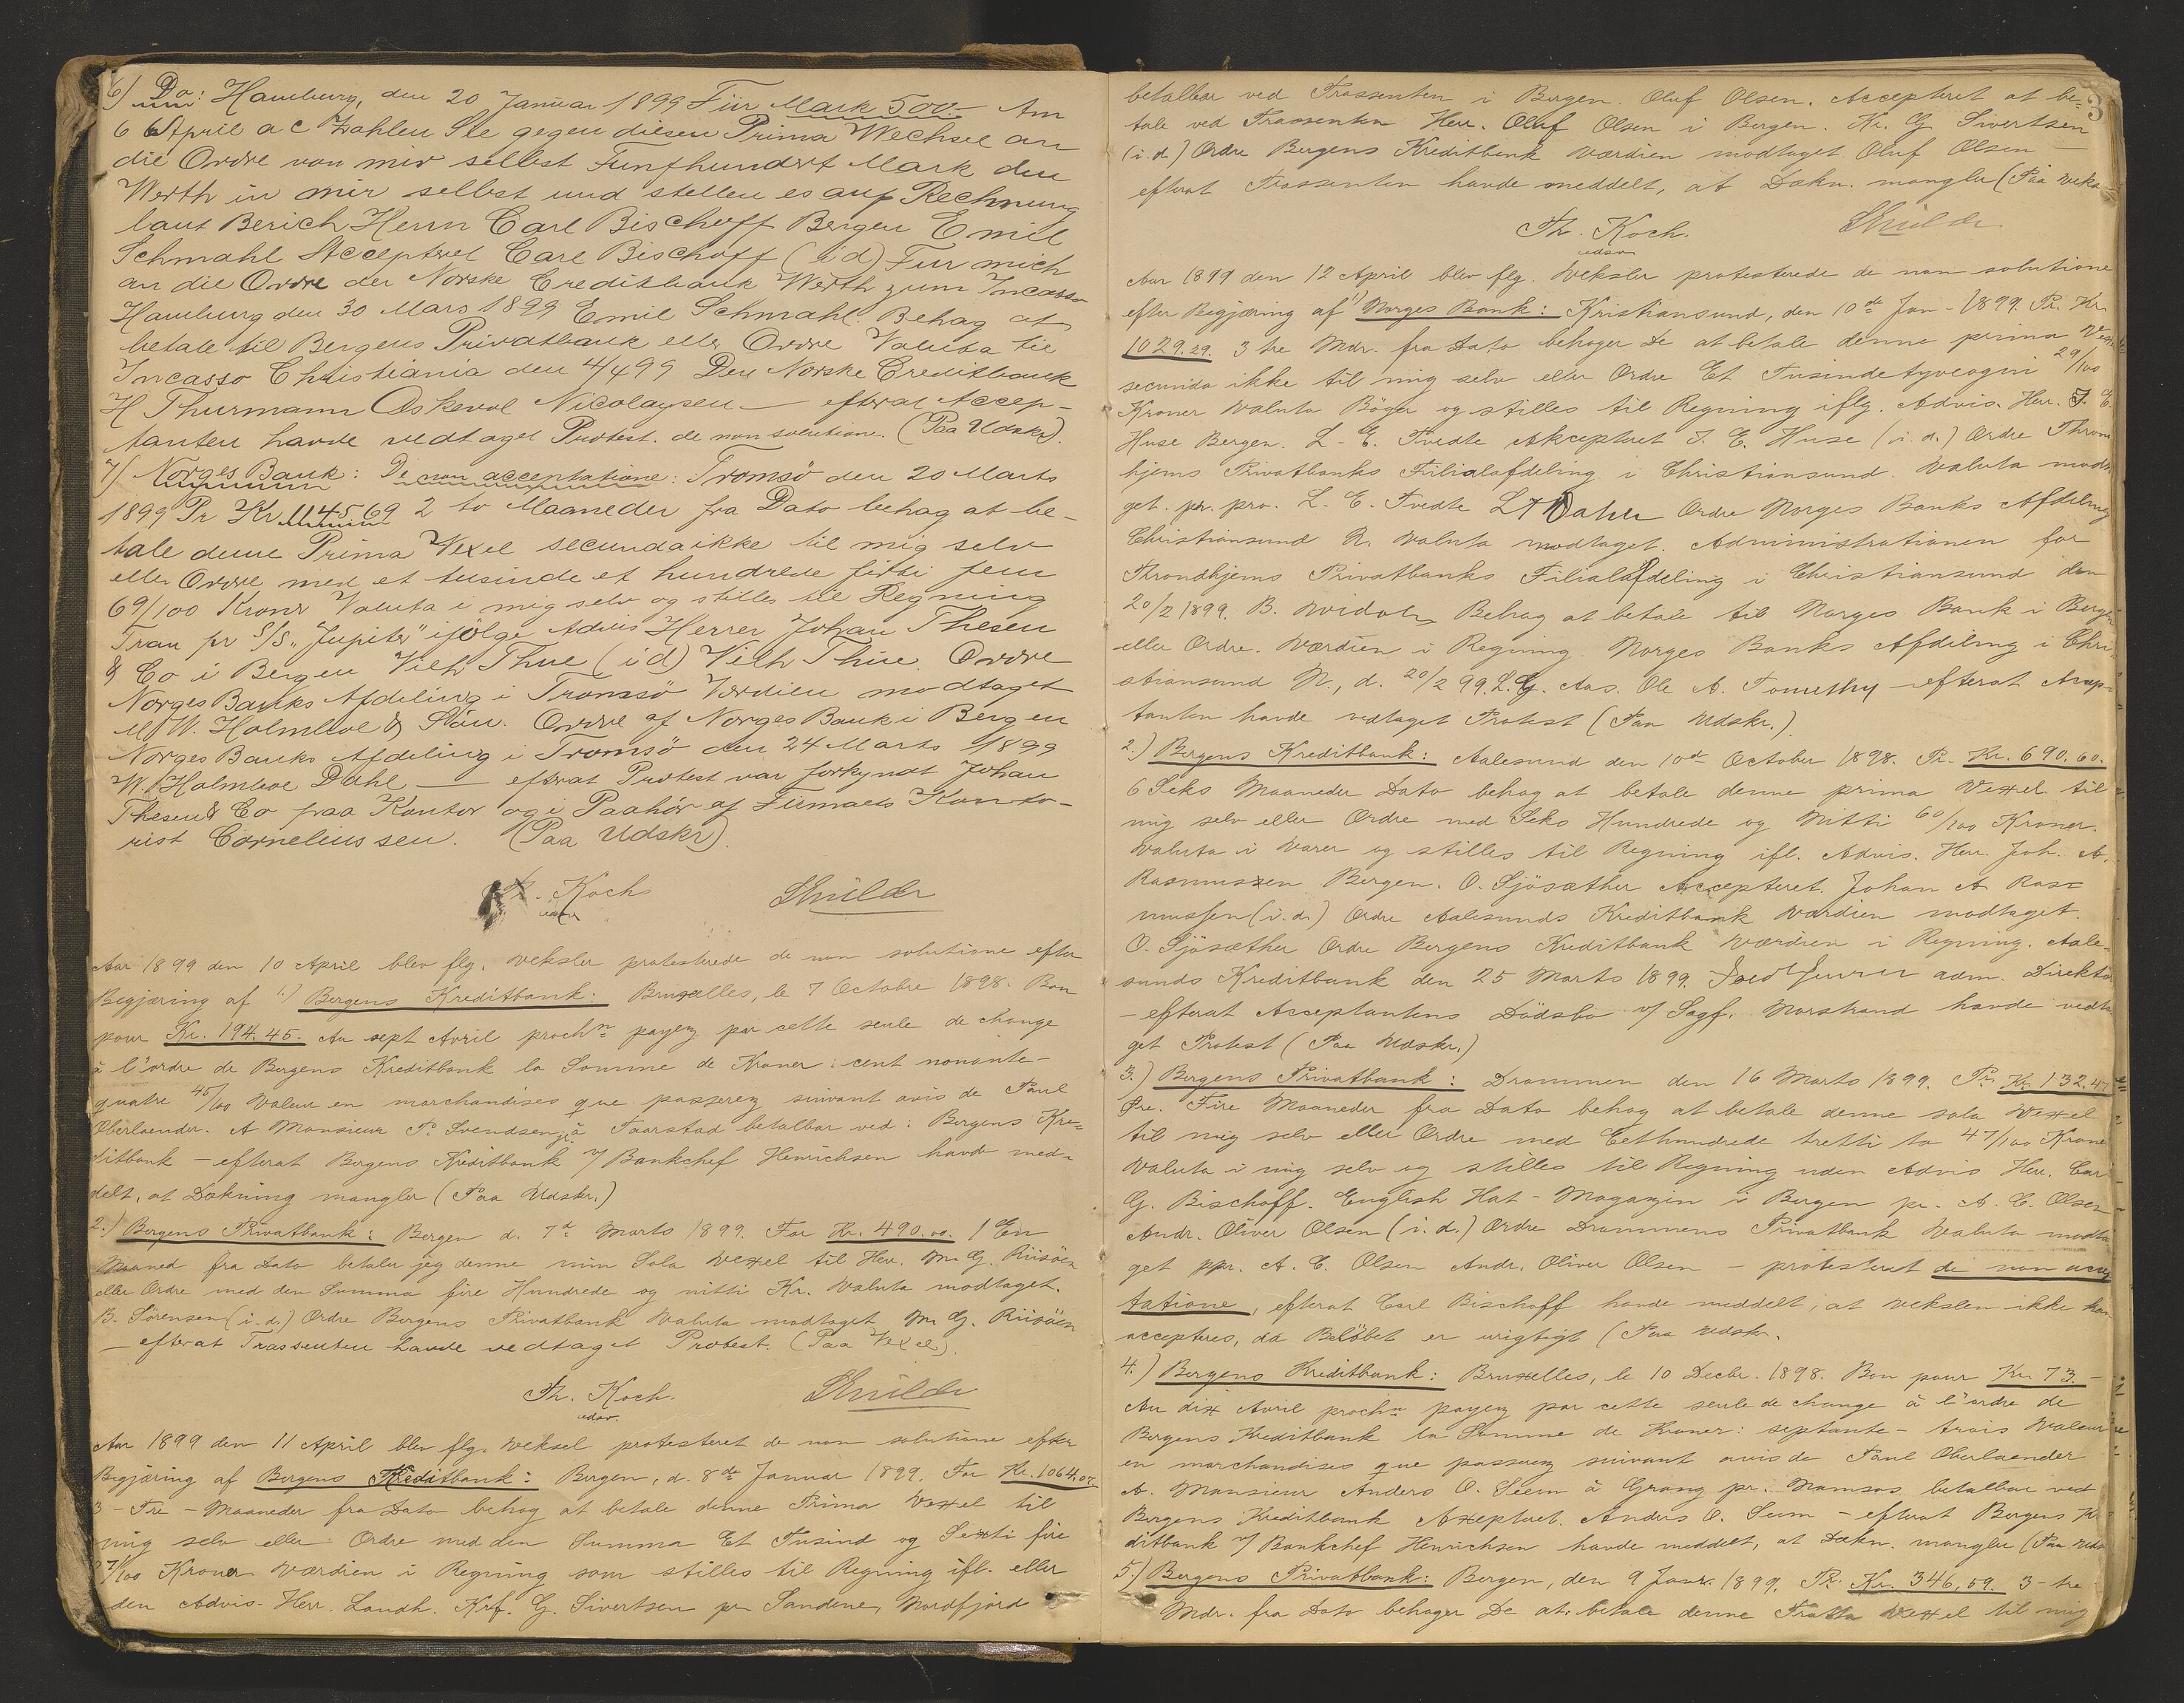 6) Do: Hamburg, den 20 Januar 1899 Für Mark 500.- Am
6 6 April a c Zahlen Sie gegen diesen Prima Wechsel an
die Ordre von mir selbst Fünfhundert Mark den
Werth in mir selbst und stellen es auf Rechnung
laut Berich Herrn Carl Bischoff Bergen Emil
Schmahl Accepteret Carl Bischoff (i d) Für mich
an die Ordre der Norske Creditbank Werth zum Incasso
Hamburg den 30 Mars 1899 Emil Schmahl. Behag at
betale til Bergens Privatbank eller Ordre Valuta til
Incasso Christiania den 4/4 99 Den Norske Creditbank
H Thurmann Oskevol Nicolaysen — efterat Accep-
tanten havde vedtaget Protest. de non solutione. (Paa Udskr).
7) Norges Bank: De non acceptatione: Tromsö den 20 Marts
1899 Pr Kr 1145 69 2 to Maaneder fra Dato behag at be-
tale denne Prima Vexel secunda ikke til mig selv
eller Ordre med et tusinde et hundrede firti fem
69/100 Kroner Valuta i mig selv og stilles til Regning
Tran pr S/S. "Jupiter" ifölge Advis Herrer Johan Thesen
& Co i Bergen Vilh Thue (i d) Vilh Thue. Ordre
Norges Banks Afdeling i Tromsö Værdien modtaget
M/W. Holmboe & Sön. Ordre af Norges Bank i Bergen
Norges Banks Afdeling i Tromsö den 24 Marts 1899
W. Holmboe Dahl — efterat Protest var forkyndt Johan
Thesen & Co paa Kontor og i Paahör af Firmaets Konto-
rist Corneliussen. (Paa Udskr).
Th. Koch
Aar 1899 den 10 April blev flg. Veksler protesterede de non solutione efter
Begjæring af 1.) Bergens Kreditbank: Bruxelles, le 7 Octobre 1898. Bon
pour Kr. 194.45. Au sept Avril prochn payez par cette seule de change
à l'ordre de Bergens Kreditbank la Somme de Kroner: cent nonante-
quatre 45/100 Valeur en marchandises que passerez suivant avis de Paul
Oberlaender. A Monsieur P. Svendsen jr. à Faarstad betalbar ved: Bergens Kre-
ditbank – efterat Bergens Kreditbank v/ Bankchef Henrichsen havde med-
delt, at Dækning mangler (Paa Udskr.)
2.) Bergens Privatbank: Bergen d. 7d Marts 1899. For Kr. 490.00. 1 En
Maaned fra Dato betaler jeg denne min Sola Vexel til Herr. M. G. Riisöen
eller Ordre med den Summa fire Hundrede og nitti Kr. Valuta modtaget.
B. Sörensen (i.d.) Ordre Bergens Privatbank Valuta modtaget M. G. Riisöen
– efterat Trassenten havde vedtaget Protest. (Paa Vexel).
Th. Koch.
Aar 1899 den 11 April blev flg. Veksel protesteret de non solutione efter
Begjæring af Bergens Kreditbank: Bergen, d. 8de Januar 1899. For Kr. 1064.07
3 – Tre – Maaneder fra Dato behag at betale denne Prima Vexel til
mig selv eller Ordre med den Summa Et Tusind og Sexti fire
7/100 Kroner Værdien i Regning som stilles til Regning ifl. eller
den Advis- Herr. Landh. Krf. G. Sivertsen pr Sandene, Nordfjord
3
betalbar ved Trassenten i Bergen. Oluf Olsen. Accepteret at be-
tale ved Trassenten Herr. Oluf Olsen i Bergen. Kr. G Sivertsen
(i.d.) Ordre Bergens Kreditbank Værdien modtaget Oluf Olsen —
efterat Trassenten havde meddelt, at Dækn. mangler (Paa
Th. Koch.
Aar 1899 den 12 April blev flg. Veksler protesterede de non solutione
efter Begjæring af 1) Norges Bank: Kristiansund, den 10de Jan – 1899. Pr. Kr.
1029.29. 3 tre Mdr. fra Dato behager De at betale denne prima Vexel
secunda ikke til mig selv eller Ordre Et Tusindetyveogni 29/100
Kroner Valuta Böger og stilles til Regning iflg. Advis. Herr. J. E.
Huse Bergen. L. E. Tvedte Akcepteret J. E. Huse (i.d.) Ordre Thrond
hjems Privatbanks Filialafdeling i Christiansund. Valuta modta
get. pr. pro. L. E. Tvedte L Dahl Ordre Norges Banks Afdeling
Christiansund N. Valuta modtaget. Administrationen for
Throndhjems Privatbanks Filialafdeling i Christiansund den
20/2 1899. B. Behag at betale til Norges Bank i Bergen
eller Ordre. Værdien i Regning. Norges Banks Afdeling i Chri-
stiansund N., d. 20/2 99. L. G. Aas. Ole A. – efterat Accep-
tanten havde vedtaget Protest (Paa Udskr.)
2.) Bergens Kreditbank: Aalesund den 10de October 1898. Pr. Kr. 690.60.
6 Seks Maaneder Dato behag at betale denne prima Vexel til
mig selv eller Ordre med Seks Hundrede og Nitti 60/100 Kroner.
Valuta i Varer og stilles til Regning ifl. Advis. Herr. Joh. A.
Rasmussen Bergen. O. Sjösæther Accepteret. Johan A Ras-
mussen (i.d.) Ordre Aalesunds Kreditbank Værdien modtaget.
O. Sjösæther Ordre Bergens Kreditbank Værdien i Regning. Aale-
sunds Kreditbank den 25 Marts 1899. adm. Direktör
– efterat Acceptantens Dödsbo v/ Sagf. Morstrand havde vedta
get Protest (Paa Udskr.)
3.) Bergens Privatbank: Drammen den 16 Marts 1899. Pr. Kr. 132.47
Öre. Fire Maaneder fra Dato behag at betale denne sola Vexel
til mig selv eller Ordre med Eethundrede tretti to 47/100 Kroner
Valuta i mig selv og stilles til Regning uden Advis Herr. Carl
G. Bischoff. English Hat-Magazin i Bergen pr. A. C. Olsen
Andr. Oliver Olsen (i.d.) Ordre Drammens Privatbank Valuta modta
get ppr. A. C. Olsen Andr. Oliver Olsen – protesteret de non accep
tatione, efterat Carl Bischoff havde meddelt, at Vekslen ikke kan
accepteres, da Belöbet er urigtigt (Paa Udskr.
4.) Bergens Kreditbank: Bruxelles, le 10 Decbr. 1898. Bon pour Kr. 73.–
Au dix Avril prochn payez par cette seule de change à l'ordre de
Bergens Kreditbank la Somme de Kroner: septante-trois Valeur
en marchandises que passerez suivant avis de Paul Oberlaender
A. Monsieur Anders O. Seem à Grong pr. Namsos. betalbar ved
Bergens Kreditbank Axepteret. Anders O. Seem – efterat Bergens Kre
ditbank v/ Bankchef Henrichsen havde meddelt, at Dækn. mangler (Paa Udskr
5.) Bergens Privatbank: Bergen, den 9 Janr. 1899. Pr. Kr. 346,59. 3 – tre
Mdr. fra Dato behager De at betale denne Tratta Vexel til mig